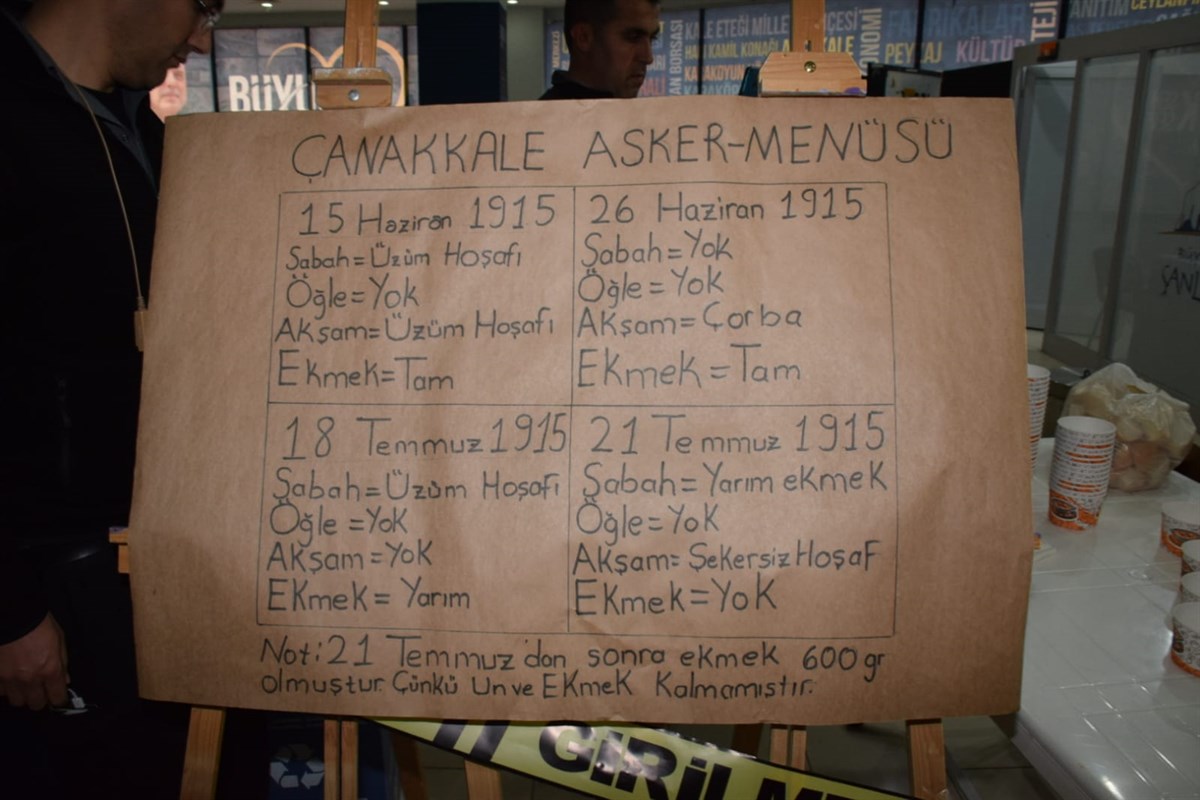 BÜYÜ
KALE ETEĞİ MİLLE
ÇESİ
FABRİKALAR
PEYZAJ KÜLTÜR
ÇANAKKALE ASKER-MENÜSÜ
15 Haziran 1915
Sabah=Üzüm Hoşafı
Öğle=Yok
Akşam=Üzüm Hoşafı
Ekmek=Tam
26 Haziran 1915
Sabah=Yok
Öğle=Yok
Akşam=Çorba
Ekmek=Tam
18 Temmuz 1915
Sabah=Üzüm Hoşafı
Öğle=Yok
Akşam=Yok
Ekmek=Yarım
21 Temmuz 1915
Sabah=Yarım ekmek
Öğle=Yok
Akşam=Şekersiz Hoşaf
Ekmek=Yok
Not:21 Temmuz'dan sonra ekmek 600 gr
olmuştur. Çünkü Un ve Ekmek Kalmamıştır.
GİRİLM